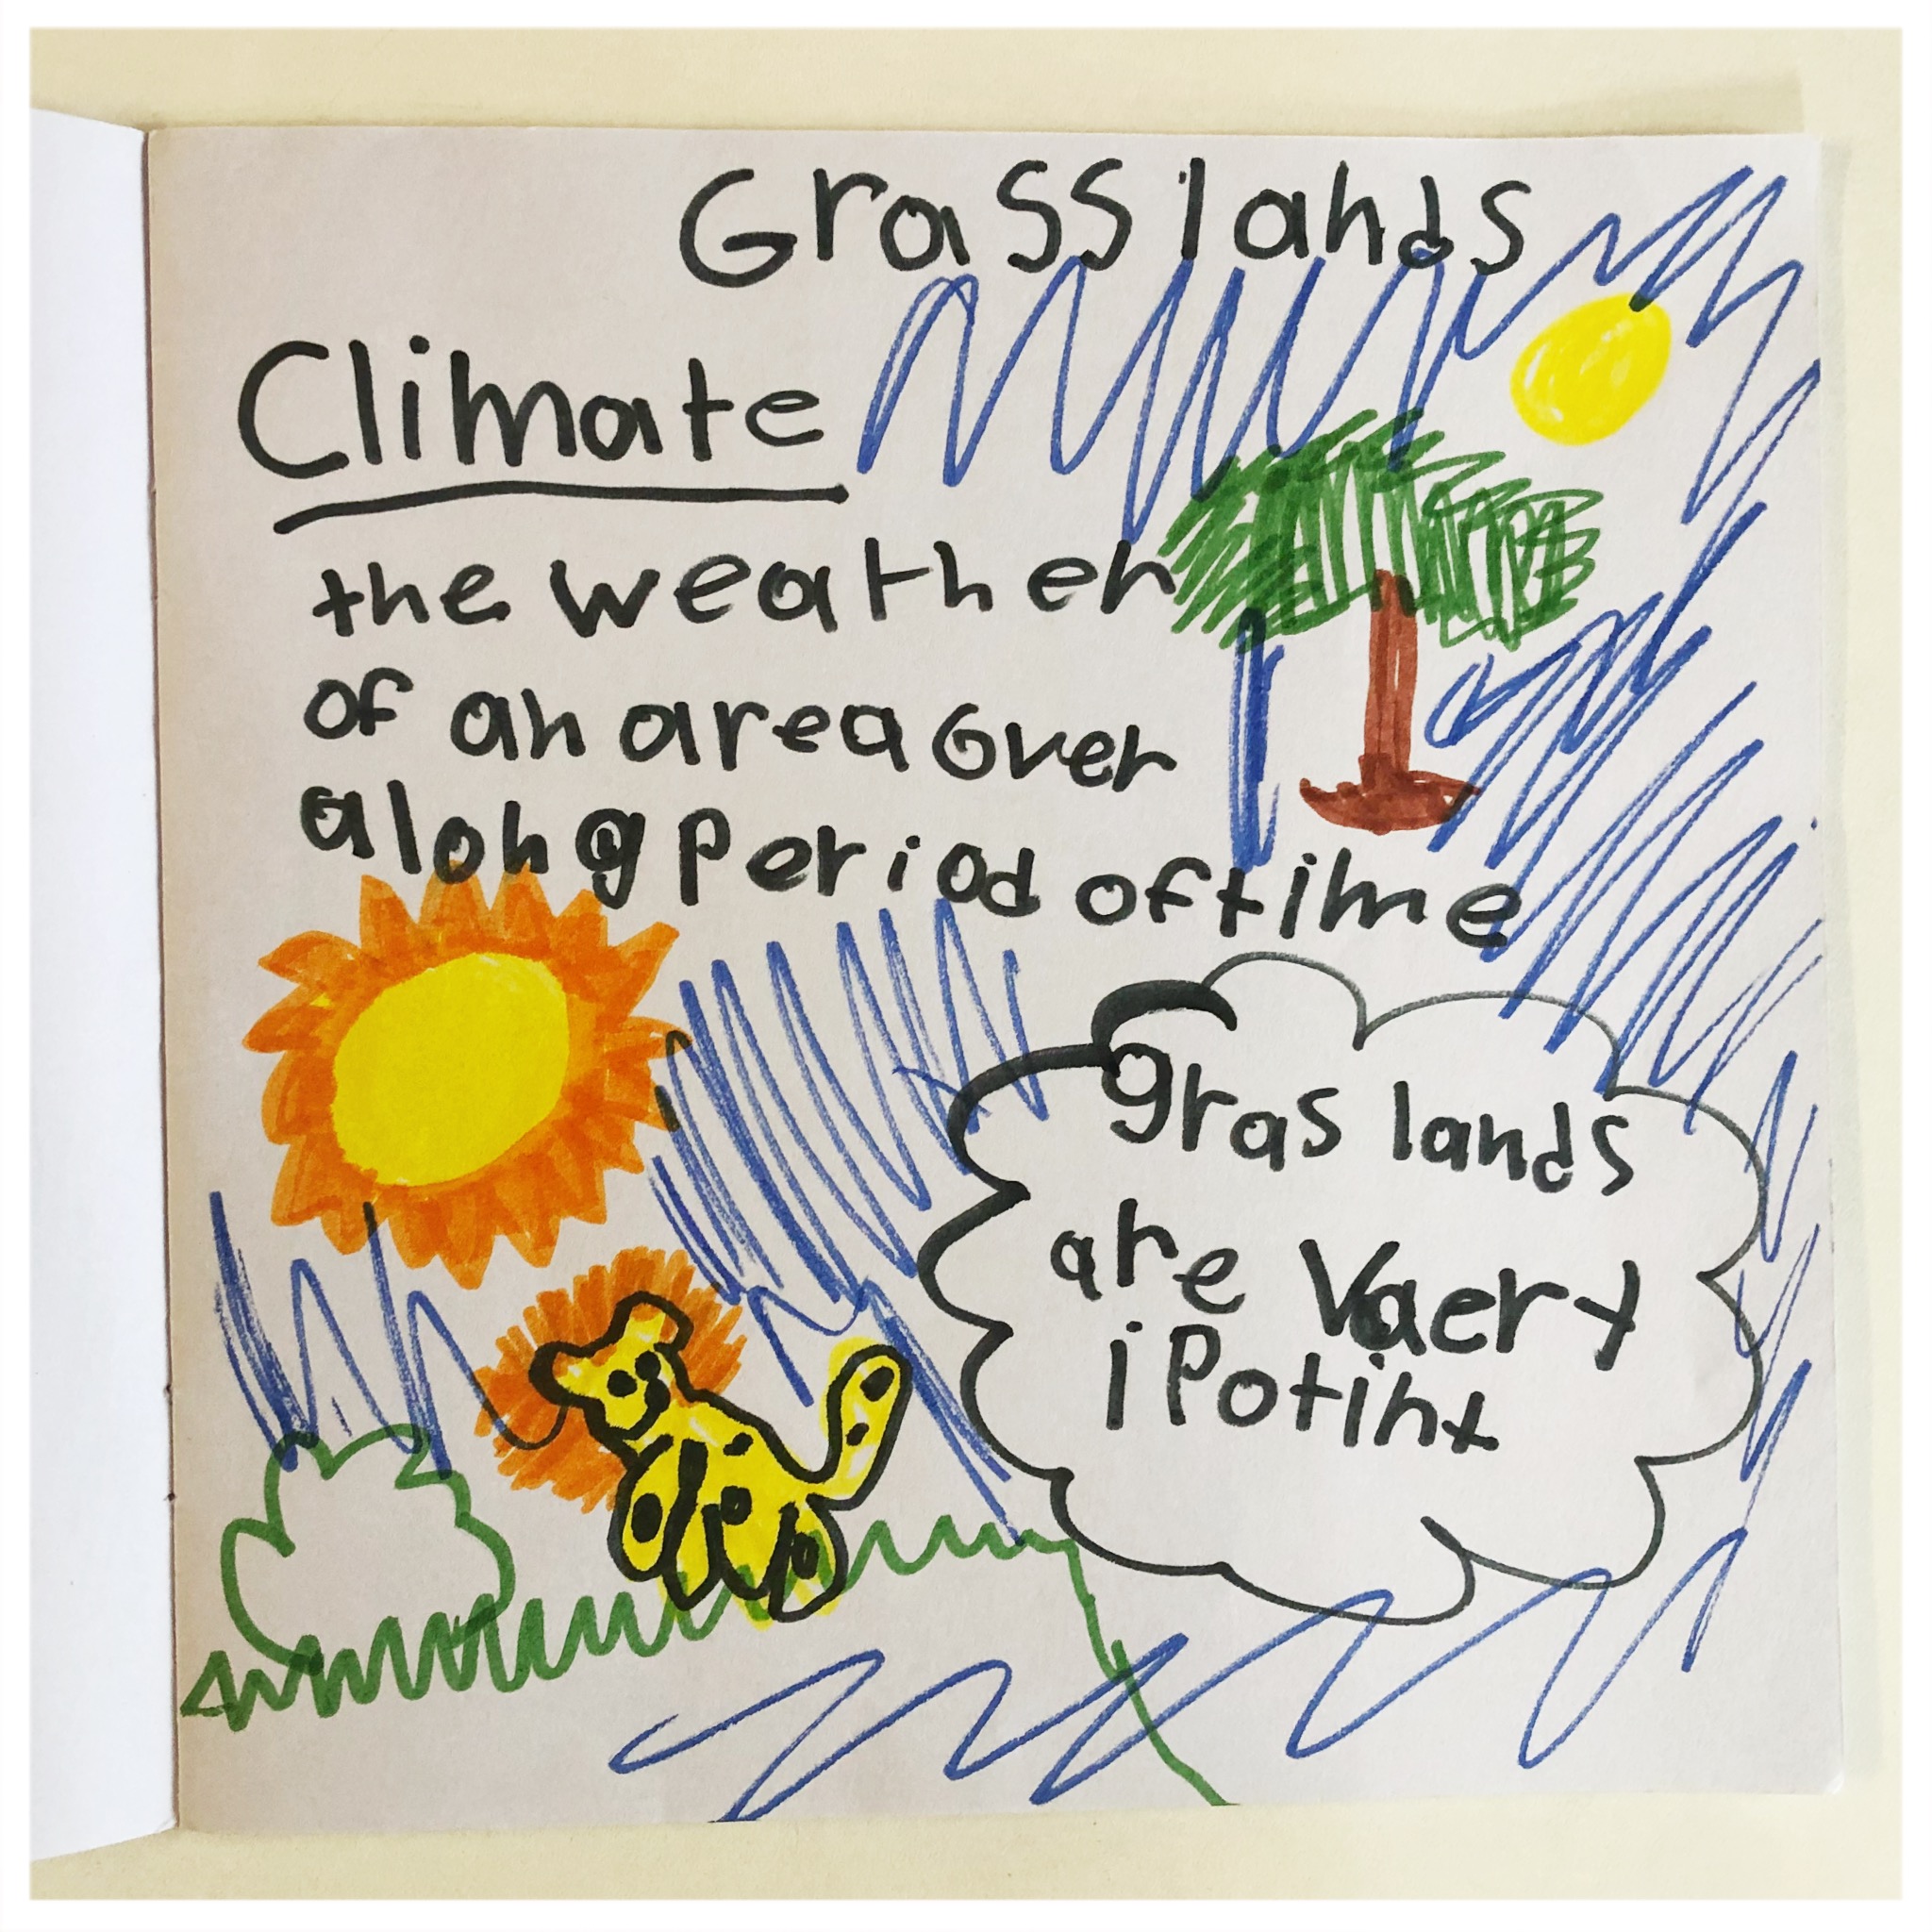 Grasslands
Climate
the weather
of an area over
a long period of time
gras lands
are Vaery
iPotint